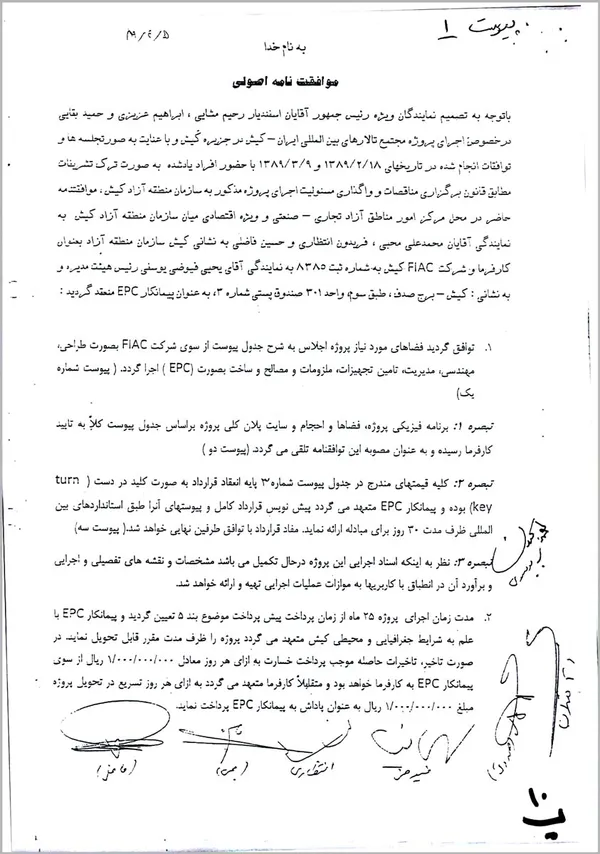 پیوست ۱
به نام خدا
موافقت نامه اصولی
باتوجه به تصمیم نمایندگان ویژه رئیس جمهور آقایان اسفندیار رحیم مشایی ، ابراهیم عزیزی و حمید بقایی
درخصوص اجرای پروژه مجتمع تالارهای بین المللی ایران – کیش در جزیره کیش و با عنایت به صورتجلسه ها و
توافقات انجام شده در تاریخهای ۱۳۸۹/۲/۱۸ و ۱۳۸۹/۳/۹ با حضور افراد یادشده به صورت ترک تشریفات
مطابق قانون برگزاری مناقصات و واگذاری مسئولیت اجرای پروژه مذکور به سازمان منطقه آزاد کیش ، موافقتنامه
حاضر در محل مرکز امور مناطق آزاد تجاری – صنعتی و ویژه اقتصادی میان سازمان منطقه آزاد کیش به
نمایندگی آقایان محمدعلی محبی ، فریدون انتظاری و حسین فاضلی به نشانی کیش سازمان منطقه آزاد بعنوان
کارفرما و شرکت FIAC کیش به شماره ثبت ۸۳۸۵ به نمایندگی آقای یحیی فیوضی یوسفی رئیس هیئت مدیره و
به نشانی : کیش – برج صدف ، طبق سوم، واحد ۳۰۱ صندوق پستی شماره ۳، به عنوان پیمانکار EPC منعقد گردید :
۱. توافق گردید فضاهای مورد نیاز پروژه اجلاس به شرح جدول پیوست از سوی شرکت FIAC بصورت طراحی،
مهندسی، مدیریت، تامین تجهیزات، ملزومات و مصالح و ساخت بصورت (EPC ) اجرا گردد. ( پیوست شماره
یک)
تبصره ۱: برنامه فیزیکی پروژه، فضاها و احجام و سایت پلان کلی پروژه براساس جدول پیوست کلاً به تایید
کارفرما رسیده و به عنوان مصوبه این توافقنامه تلقی می گردد. (پیوست دو )
تبصره ۲: کلیه قیمتهای مندرج در جدول پیوست شماره ۳ پایه انعقاد قرارداد به صورت کلید در دست ( turn
key) بوده و پیمانکار EPC متعهد می گردد پیش نویس قرارداد کامل و پیوستهای آنرا طبق استانداردهای بین
المللی ظرف مدت ۳۰ روز برای مبادله ارائه نماید. مفاد قرارداد با توافق طرفین نهایی خواهد شد.( پیوست سه)
تبصره ۳: نظر به اینکه اسناد اجرایی این پروژه درحال تکمیل می باشد مشخصات و نقشه های تفصیلی و اجرایی
و برآورد آن در انطباق با کاربریها به موازات عملیات اجرایی تهیه و ارائه خواهد شد.
۲. مدت زمان اجرای پروژه ۲۵ ماه از زمان پرداخت پیش پرداخت موضوع بند ۵ تعیین گردید و پیمانکار EPC با
علم به شرایط جغرافیایی و محیطی کیش متعهد می گردد پروژه را ظرف مدت مقرر قابل تحویل نماید. در
صورت تاخیر، تاخیرات حاصله موجب پرداخت خسارت به ازای هر روز معادل ۱/۰۰۰/۰۰۰/۰۰۰ ریال از سوی
پیمانکار EPC به کارفرما خواهد بود و متقابلاً کارفرما متعهد می گردد به ازای هر روز تسریع در تحویل پروژه
مبلغ ۱/۰۰۰/۰۰۰/۰۰۰ ریال به عنوان پاداش به پیمانکار EPC پرداخت نماید.
انتظاری
(فاضلی)
۱۰